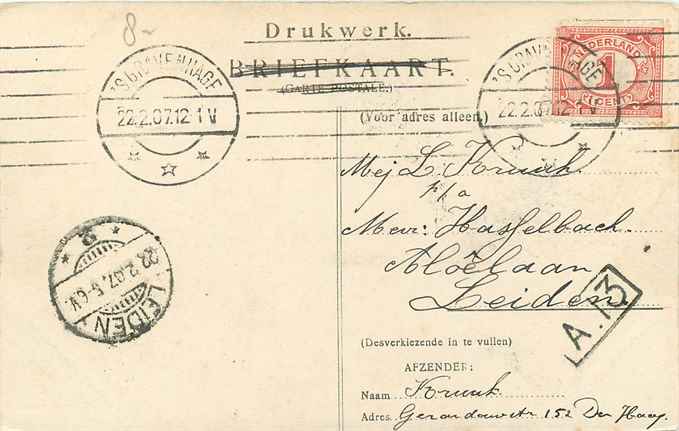 8-
Drukwerk.
BRIEFKAART.
(CARTE POSTALE.)
(Voor adres alleen.)
'S GRAVENHAGE
22.2.07.12 1 V
'S GRAVENHAGE
22.2.07.12 V
NEDERLAND
1
CENT
Mej L. Kruuk
p/a
Mevr: Hasselbach.
Aloëlaan
Leiden
A.13
LEIDEN
22.2.07.5-6V.
8
(Desverkiezende in te vullen)
AFZENDER:
Naam Kruuk
Adres Gerarddouwstr 152 Den Haag.